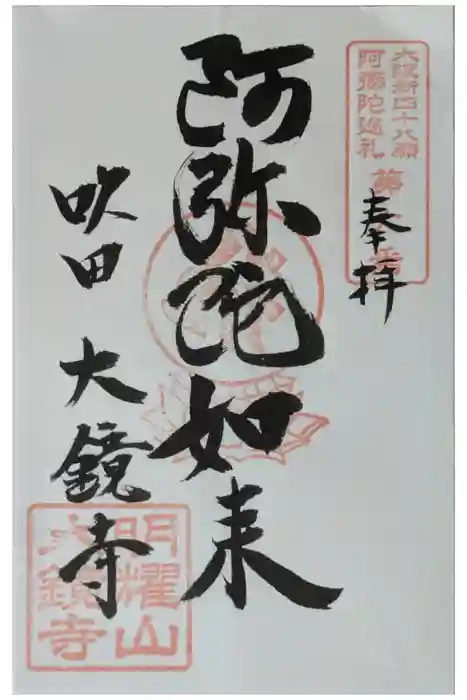 大阪新四十八願
阿彌陀巡礼
第
番
奉拝
阿弥陀如来
吹田 大鏡寺
明耀山
大鏡寺